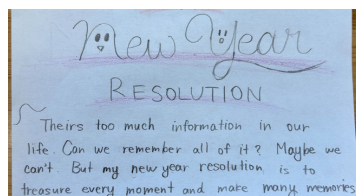 New Year
RESOLUTION
Theirs too much information in our
life. Can we remember all of it? Maybe we
can't. But my new year resolution is to
treasure every moment and make many memories